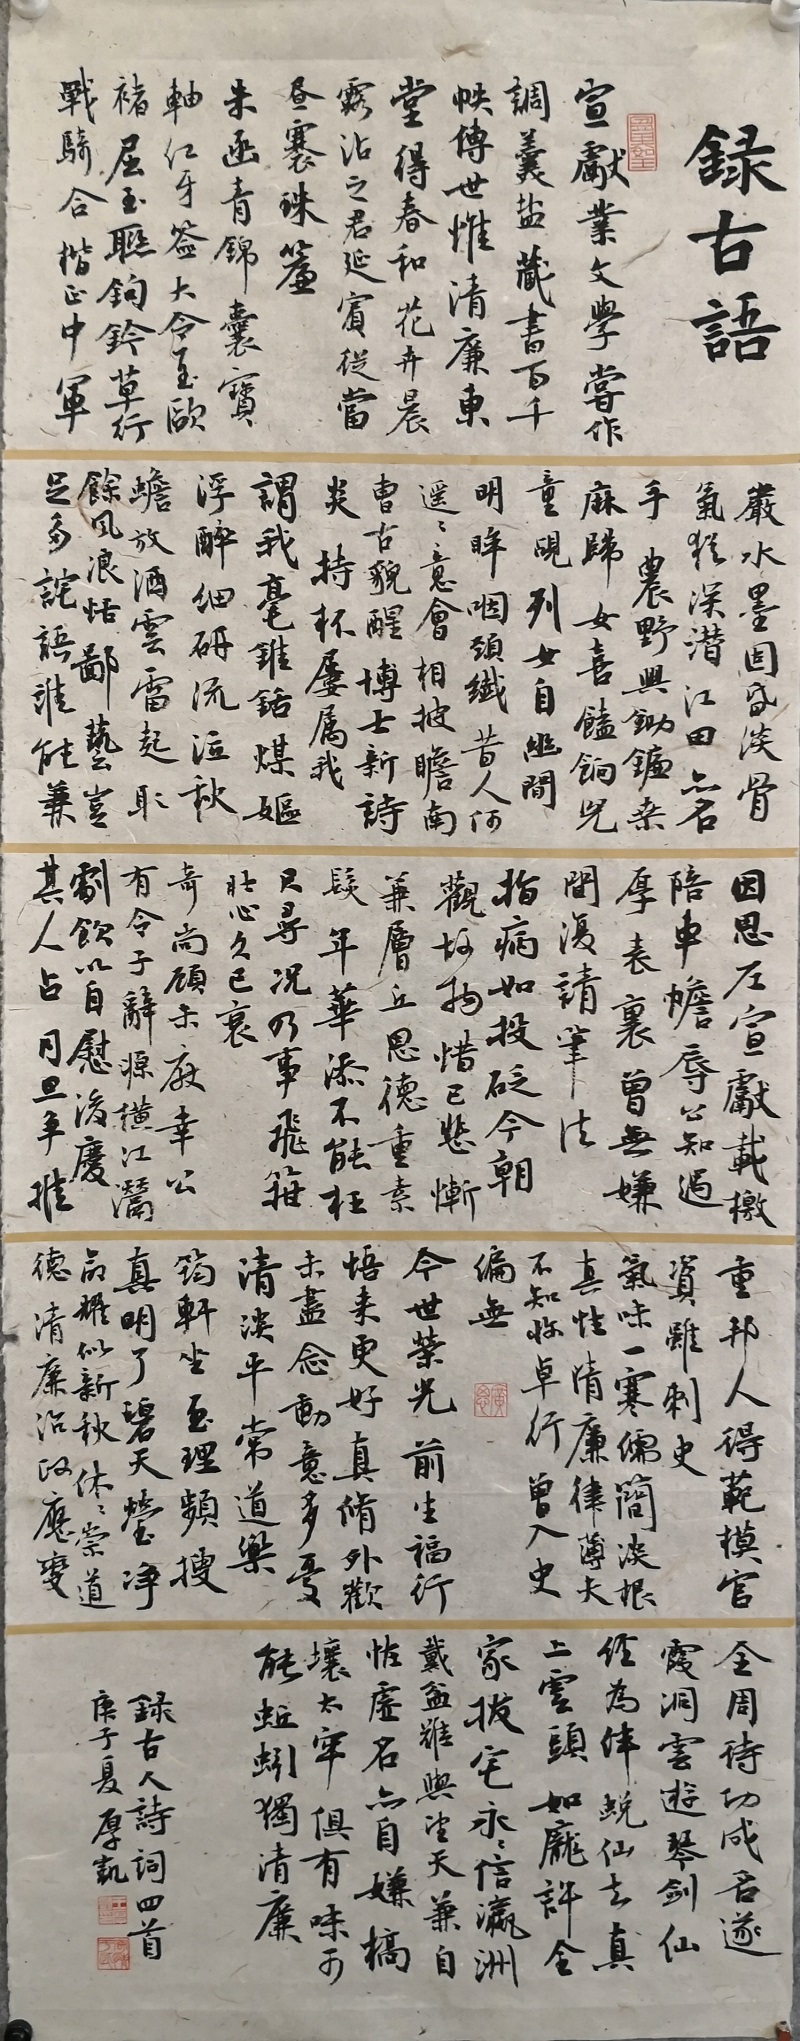 録古語
宣獻業文學嘗作
調羹盐藏書百千
帙傳世惟清廉東
堂得春和花卉晨
露沾之君延賓從當
昼褰珠簾
朱函青錦囊寶
軸红牙簽大令至歐
褚屈玉聯鈎鈐草行
戰騎合楷正中軍
嚴水墨固昏淡骨
氣猶深潜江田亦名
手農野與鋤鐮桑
麻歸女喜饁餉兒
童硯列女自幽閒
明眸咽頸纖昔人何
遥遥意會相披瞻南
曹古貌醒博士新詩
炎持杯屡属我
謂我毫錐銛煤嫗
浮醉细研流泣秋
蟾放酒雲雷起取
餘风浪恬鄙藝豈
足多詫語誰能兼
因思左宣獻載檄
陪車幨辱公知遇
厚表裏曾無嫌
閒復請筆法
指病如投砭今朝
觀故物惜已悲慚
兼層丘思德重素
髮年華添不能枉
只尋况乃事飛箝
壯心久已衰
奇尚顧未厭幸公
有令子辭源横江灊
劇飲以自慰後慶
其人占月旦争推
重邦人得範模官
資雖刺史
氣味一寒儒簡淡根
真性清廉律薄夫
不知將卓行曾入史
編無
今世榮光前生福行
悟来更好真脩外歡
未盡念動意多憂
清淡平常道樂
筠軒坐至理頻搜
真明了碧天瑩净
朗耀似新秋休休崇道
德清廉治政應變
全周待功成名遂
霞洞雲遊琴剑仙
经為伴蜕仙去真
上雲頭如龐許全
家拔宅永永信瀛洲
戴盆難與望天兼自
怪虚名亦自嫌槁
壤太牢俱有味可
能蚯蚓獨清廉
録古人詩詞四首
庚子夏厚凱